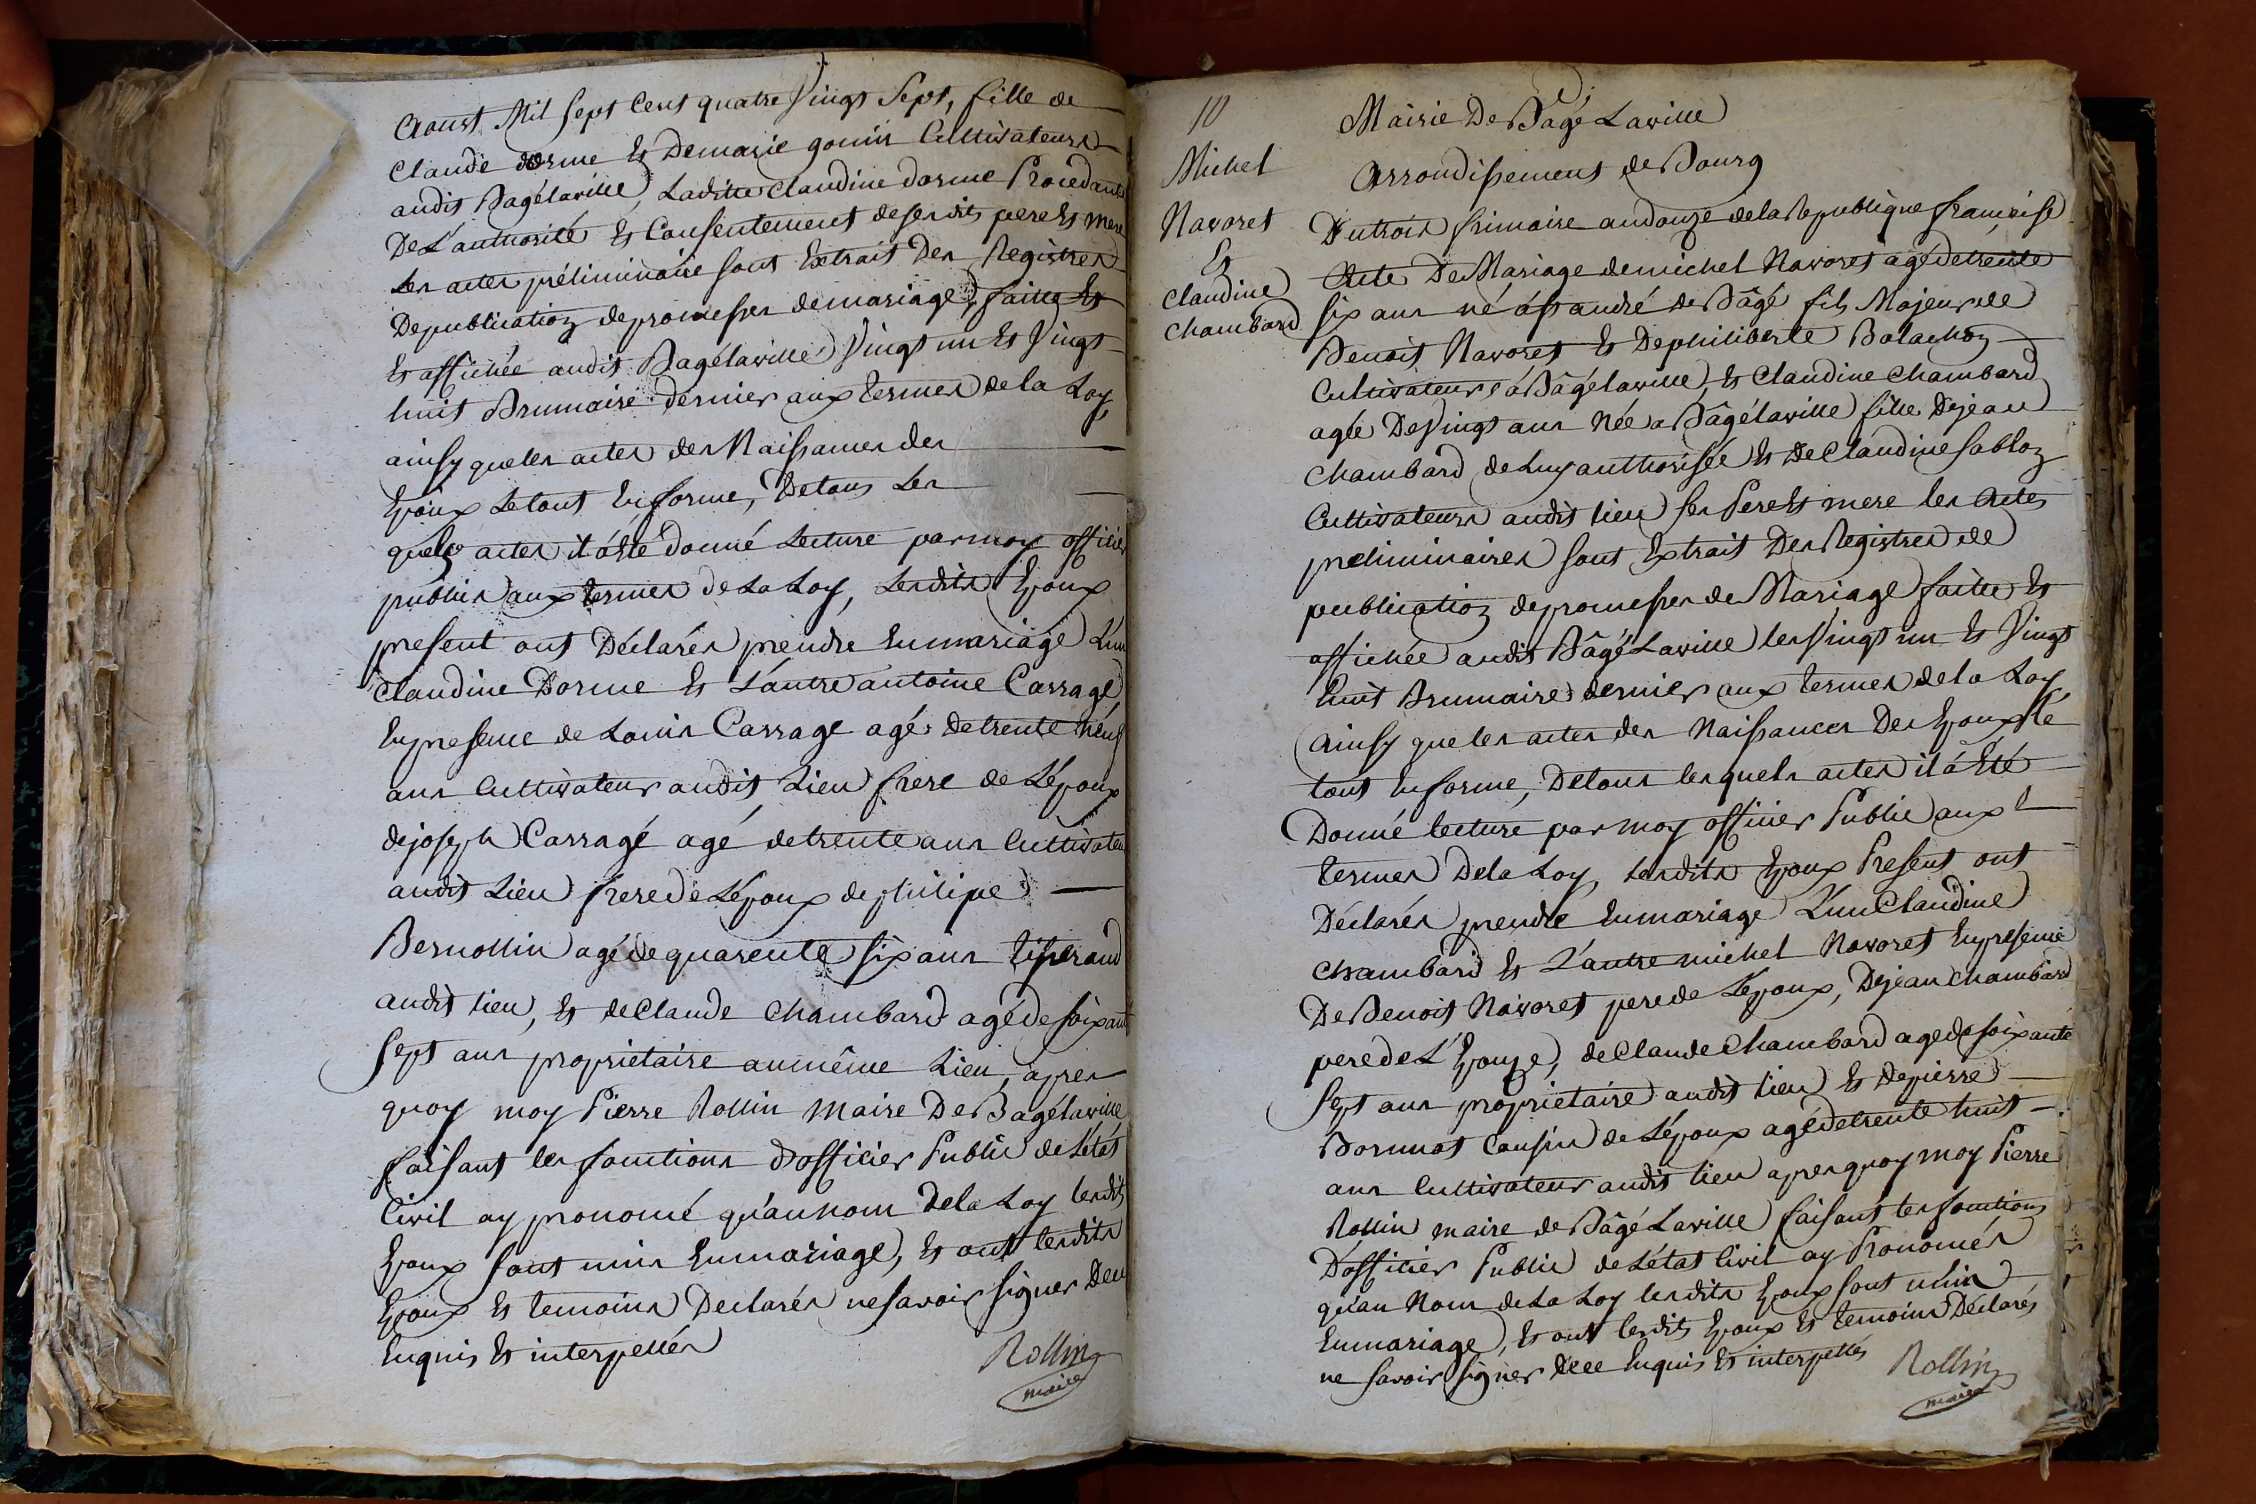 Aoust Mil sept Cent quatre Vingt Sept, fille de
Claude dorme Et Demarie gonin Cultivateurs
audit Bagélaville, Laditte Claudine dorme Procedante
De L'authorité Et Consentement de sesdits pere Et mere
Les actes préliminaire sont Extrait Des Registres
De publication de promesses de mariage, faitte Et
Et affichée audit Bagélaville Vingt un Et Vingt
huit Brumaire dernier aux termes de la Loy,
ainsy que les actes des Naissances des
Epoux Le tout En forme, De tous Les
quels actes il a Eté donné Lecture par moy officier
public aux termes de La Loy, Lesdits Epoux
present ont Déclarés prendre En mariage L'un
Claudine Dorme Et L'autre antoine Carrage
En presence de Louis Carrage agé de trente neuf
ans Cultivateur audit Lieu frere de L'époux
de joseph Carragé agé de trente ans Cultivateur
audit Lieu frere de L'époux de philipe
Bernollin agé de quarente six ans tisserand
audit lieu, Et de Claude Chambard agé de soixante
sept ans propriétaire au même Lieu, apres
quoy moy Pierre Rollin Maire De Bagélaville
faisant les fonctions d'officier Public de L'état
Civil ay pronomé qu'au nom de la Loy lesdits
Epoux sont unis En mariage, Et ont lesdits
Epoux Et temoins Declarés ne savoir signer De ce
Enquis Et interpellés
Rollin
maire
10
Michel
Navoret
Et
Claudine
Chambard
Mairie De Bâgé Laville
Arrondissement de Bourg
Du trois frimaire an douze de la Republique française
Acte De Mariage de michel Navoret agé de trente
six ans né à st andré de Bâgé fils Majeur de
Benoit Navoret Et De philiberte Balachon
Cultivateurs à Bâgélaville, Et Claudine Chambard
agée De Vingt ans Née a Bâgélaville fille De jean
Chambard de Luy authorisée Et De Claudine Sablon
Cultivateurs audit lieu ses Pere Et mere les Actes
preliminaires sont Extrait Des Registres de
publication de promesses de Mariage faitte Et
affichée audit Bâgé Laville les Vingt un Et Vingt
huit Brumaire dernier aux termes de la Loy,
Ainsy que les actes des Naissances Des Epoux Le
tout En forme, De tous lesquels actes il a Eté
Donné lecture par moy officier Public aux
termes De la Loy, lesdits Epoux Present ont
Déclarés prendre En mariage L'un Claudine
Chambard Et L'autre michel Navoret En presence
De Benoit Navoret pere de L'époux, De jean Chambard
pere de L'Epouze, de Claude Chambard age de soixante
sept ans propriétaire audit lieu Et de pierre
Bornnat Cousin de L'époux agé de trente huit
ans Cultivateur audit lieu apres quoy moy Pierre
Rollin maire de Bâgé Laville faisant les fonctions
D'officier Public de L'état Civil ay Pronomés
qu'au Nom de La Loy lesdits Epoux sont unis
En mariage, Et ont lesdits Epoux Et temoins Déclarés
ne savoir signer De ce Enquis Et interpellés
Rollin
maire